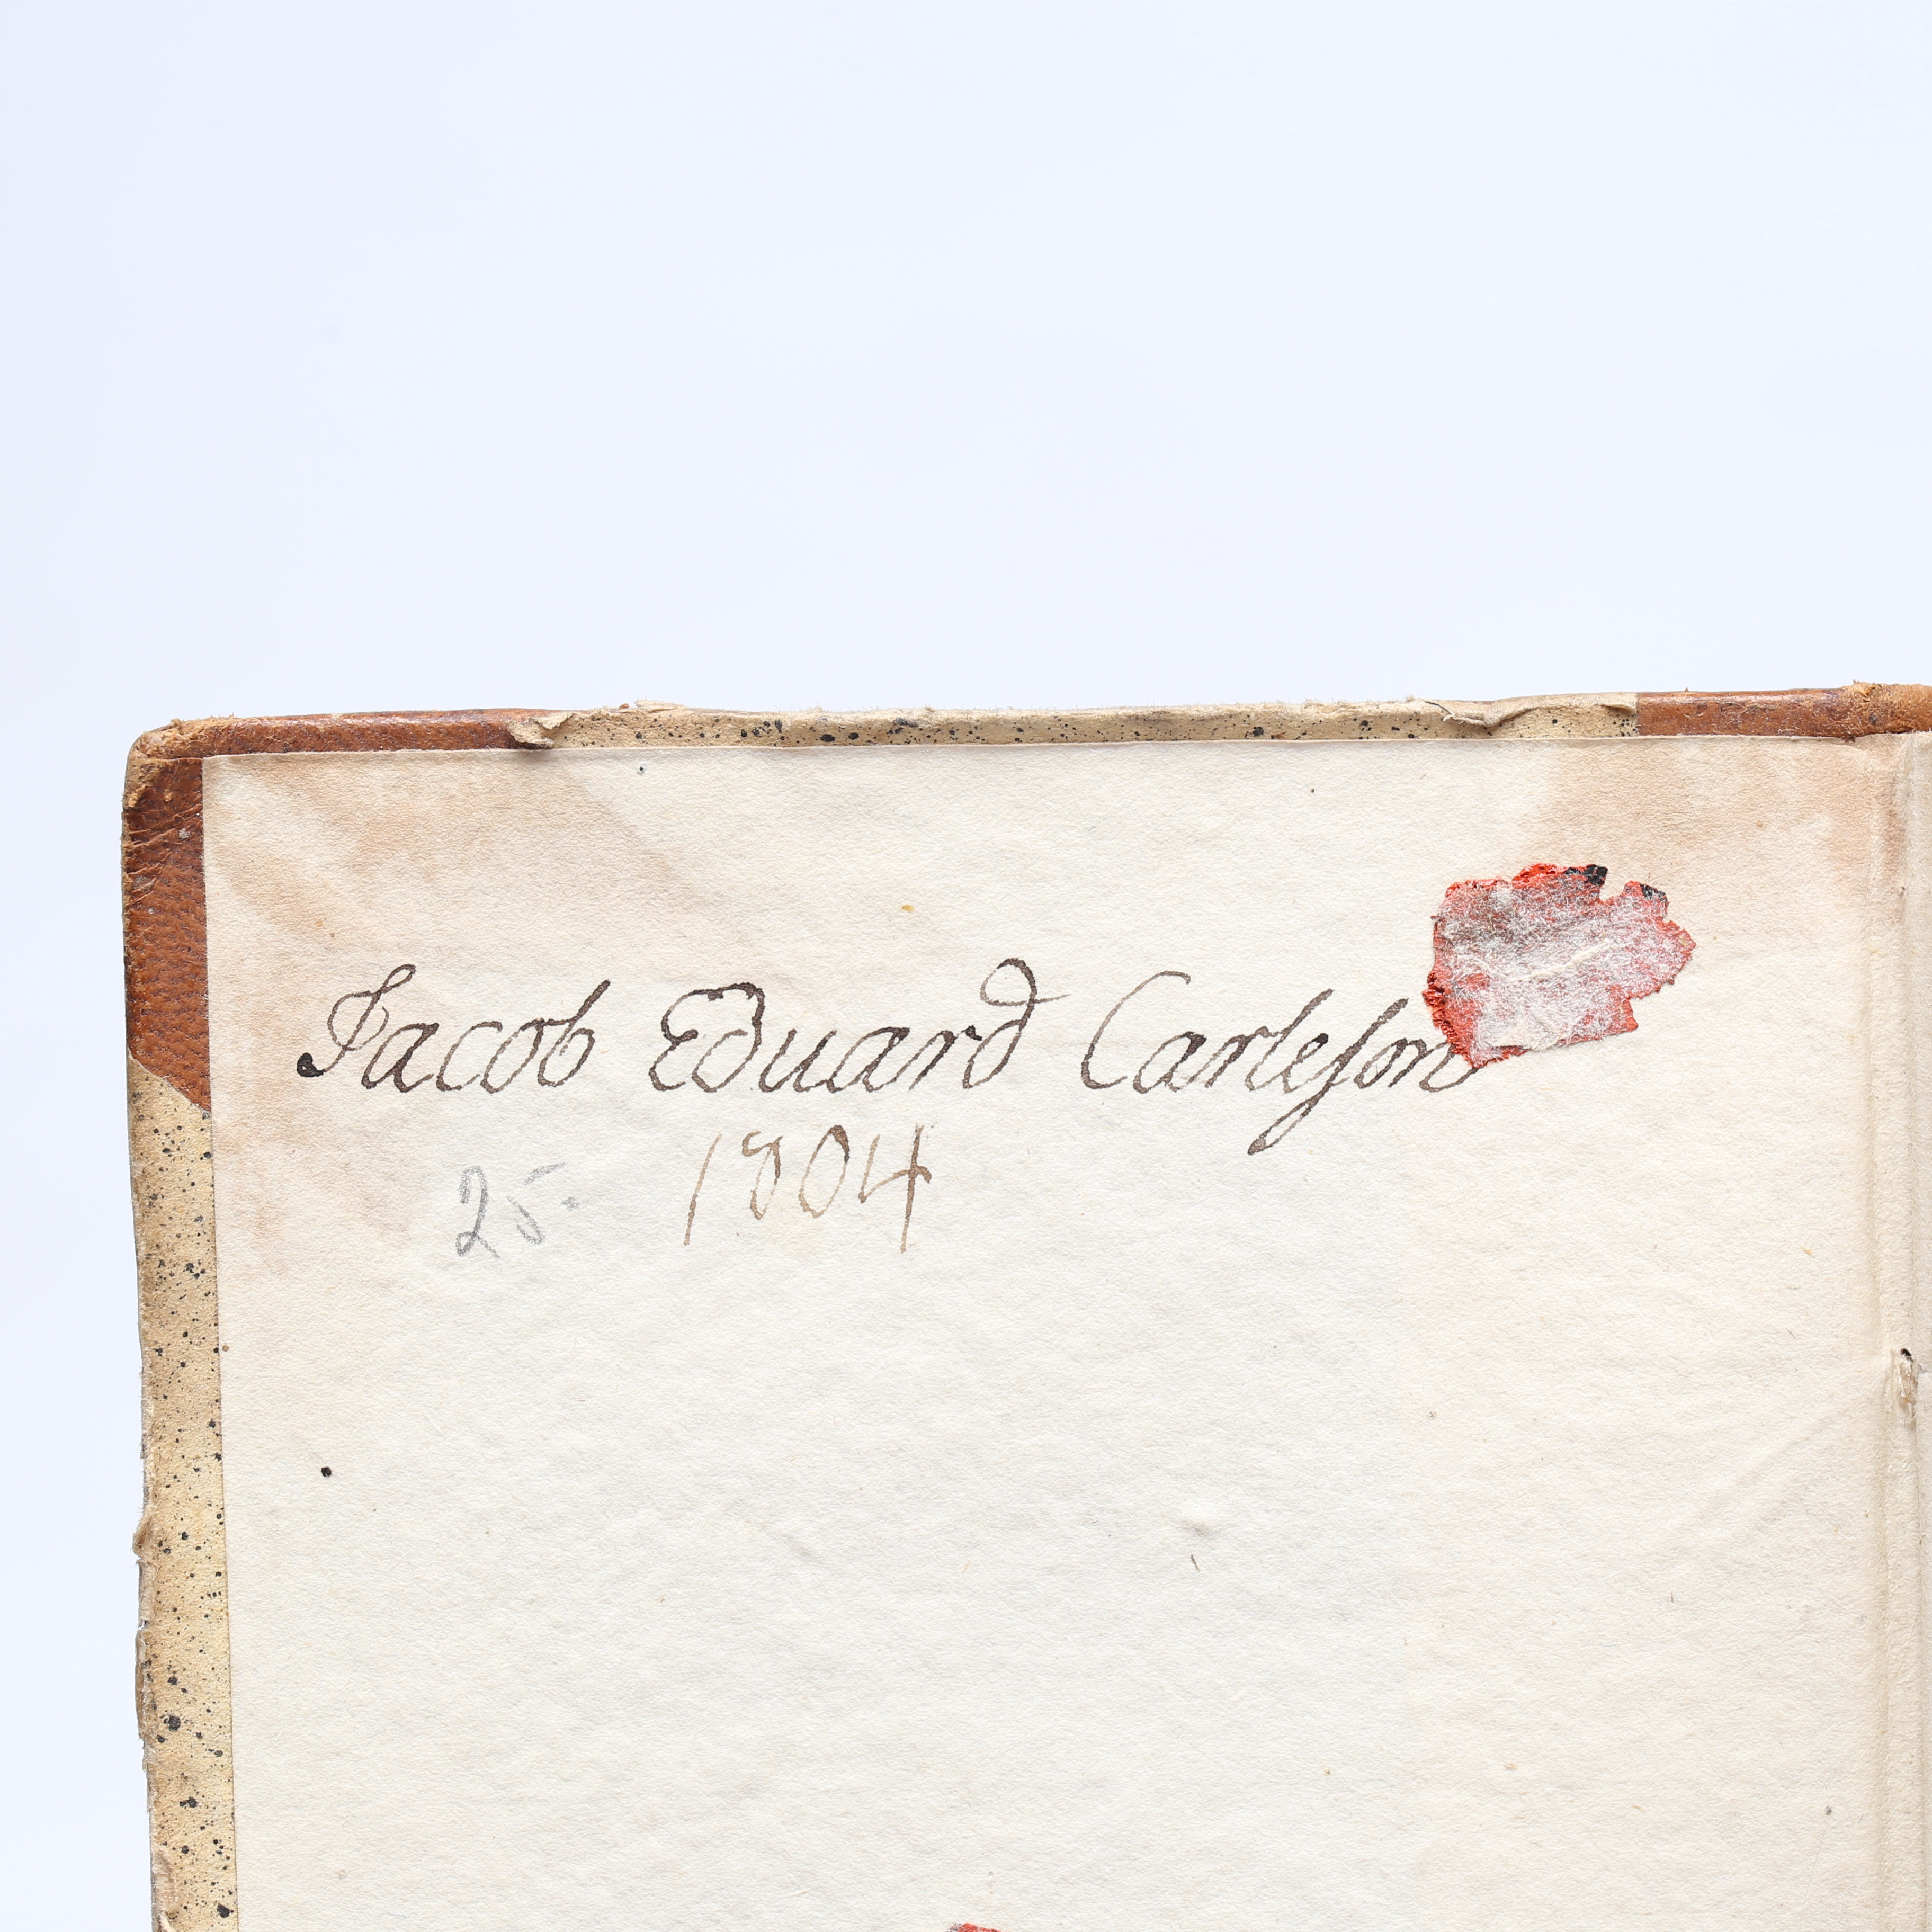 Jacob Eduard Carleson
1804
25.